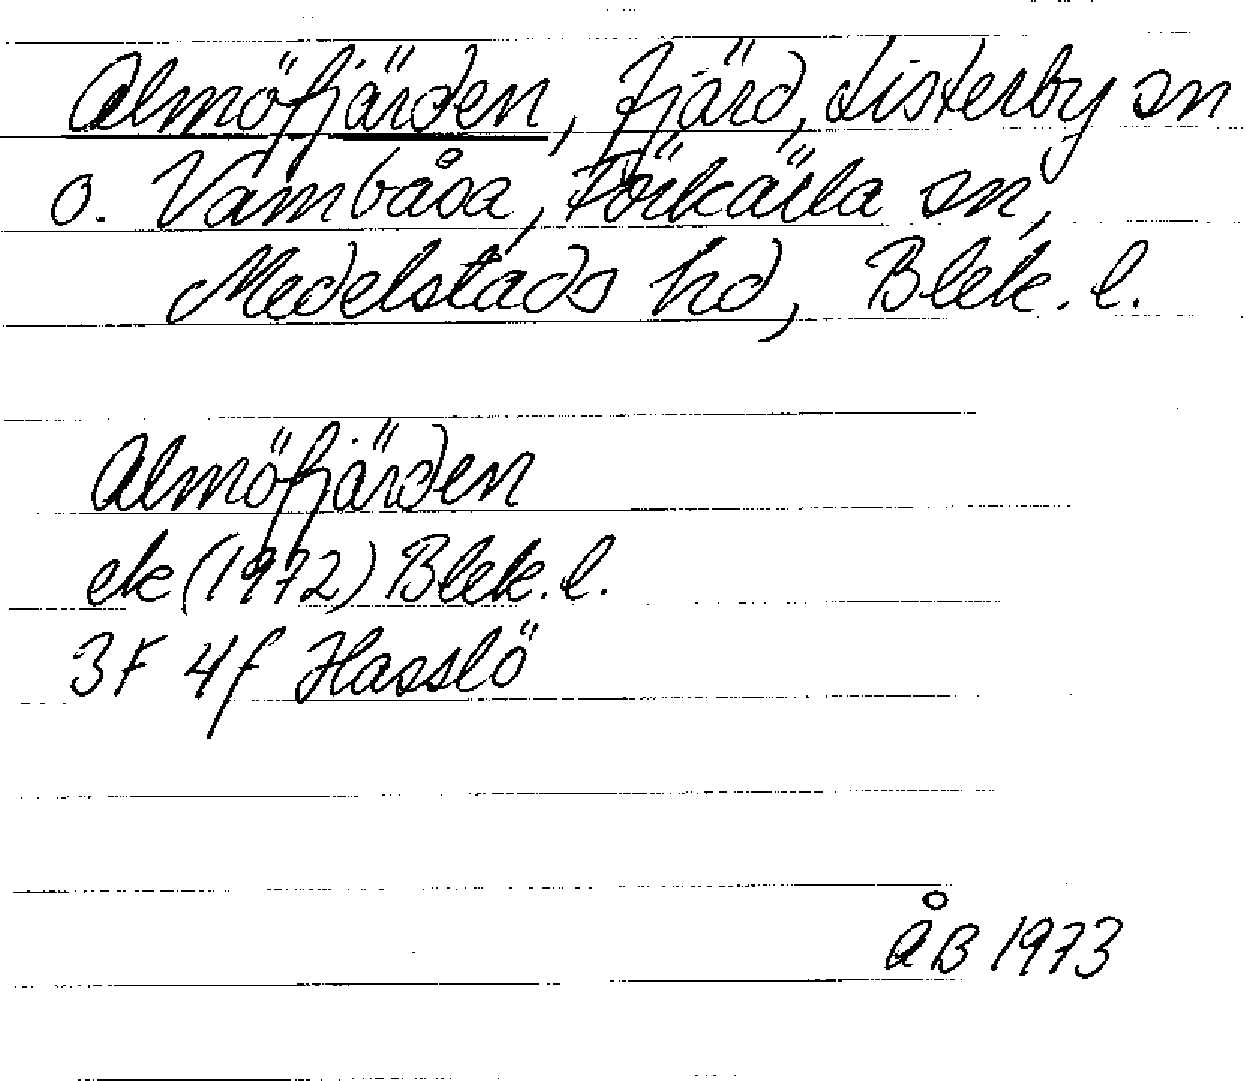 Almöfjärden, fjärd, Listerby sn
o. Vambåsa, Förkärla sn,
Medelstads hd, Blek. l.
Almöfjärden
ek (1972) Blek. l.
3F 4f Hasslö
ÅB 1973